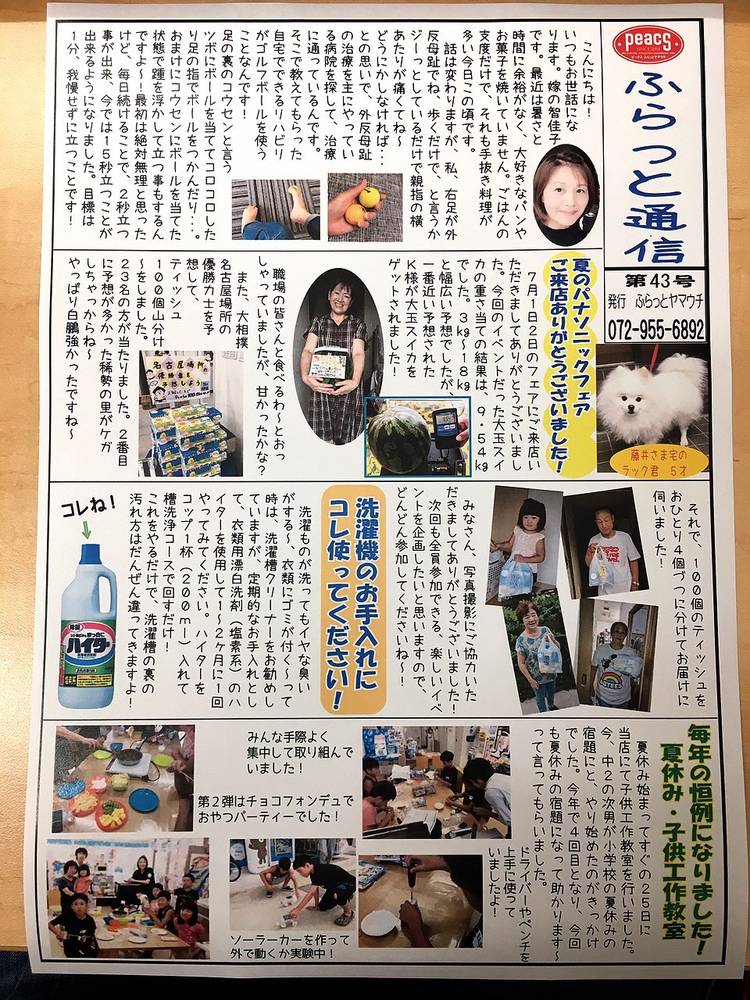 peacs
ふらっと通信
第43号
発行 ふらっとヤマウチ
072-955-6892
藤井さま宅の
ラック君 5才
こんにちは！
いつもお世話にな
ります。嫁の智佳子
です。最近は暑さと
時間に余裕がなく、大好きなパンや
お菓子を焼いていません。ごはんの
支度だけで、それも手抜き料理が
多い今日この頃です。
話は変わりますが、私、右足が外
反母趾でね、歩くだけで、と言うか
ジーっとしているだけで親指の横
あたりが痛くてね～
どうにかしなければ…
との思いで、外反母趾
の治療を主にやってい
る病院を探して、治療
に通っているんです。
そこで教えてもらった
自宅でできるリハビリ
がゴルフボールを使う
ことなんです！
足の裏のコウセンと言う
ツボにボールを当ててコロコロした
り足の指でボールをつかんだり…。
おまけにコウセンにボールを当てた
状態で踵を浮かして立つ事もするん
ですよ～！最初は絶対無理と思った
けど、毎日続けることで、2秒立つ
事が出来、今では15秒立つことが
出来るようになりました。目標は
1分、我慢せずに立つことです！
夏のパナソニックフェア
ご来店ありがとうございました！
7月1日2日のフェアにご来店い
ただきましてありがとうございまし
た。今回のイベントだった大玉スイ
カの重さ当ての結果は、9・54kg
でした。3kg～18kg
と幅広い予想でしたが、
一番近い予想された
K様が大玉スイカを
ゲットされました！
職場の皆さんと食べるわ～とおっ
しゃっていましたが、甘かったかな？
また、大相撲
名古屋場所の
優勝力士を予
想して、
ティッシュ
100個山分け
～をしました。
23名の方が当たりました。2番目
に予想が多かった稀勢の里がケガ
しちゃっからね～
やっぱり白鵬強かったですね～
名古屋場所
それで、100個のティッシュを
おひとり4個づつに分けてお届けに
伺いました！
みなさん、写真撮影にご協力いた
だきましてありがとうございました！
次回も全員参加できる、楽しいイベ
ントを企画したいと思いますので、
どんどん参加してくださいね～！
洗濯機のお手入れに
コレ使ってください！
洗濯ものが洗ってもイヤな臭い
がする～、衣類にゴミが付く～って
時は、洗濯槽クリーナーをお勧めし
ていますが、定期的なお手入れとし
て、衣類用漂白洗剤（塩素系）のハ
イターを使用して1～2ヶ月に1回
やってみてください。ハイターを
コップ1杯（200ml）入れて
槽洗浄コースで回すだけ！
これをやるだけで、洗濯槽の裏の
汚れ方はだんぜん違ってきますよ！
コレね！
ハイター
毎年の恒例になりました！
夏休み・子供工作教室
夏休み始まってすぐの25日に
当店にて子供工作教室を行いました。
今、中2の次男が小学校の夏休みの
宿題にと、やり始めたのがきっかけ
でした。今年で4回目となり、今回
も夏休みの宿題になって助かります～
って言ってもらいました。
ドライバーやペンチを
上手に使って
いましたよ！
みんな手際よく
集中して取り組んで
いました！
第2弾はチョコフォンデュで
おやつパーティーでした！
ソーラーカーを作って
外で動くか実験中！